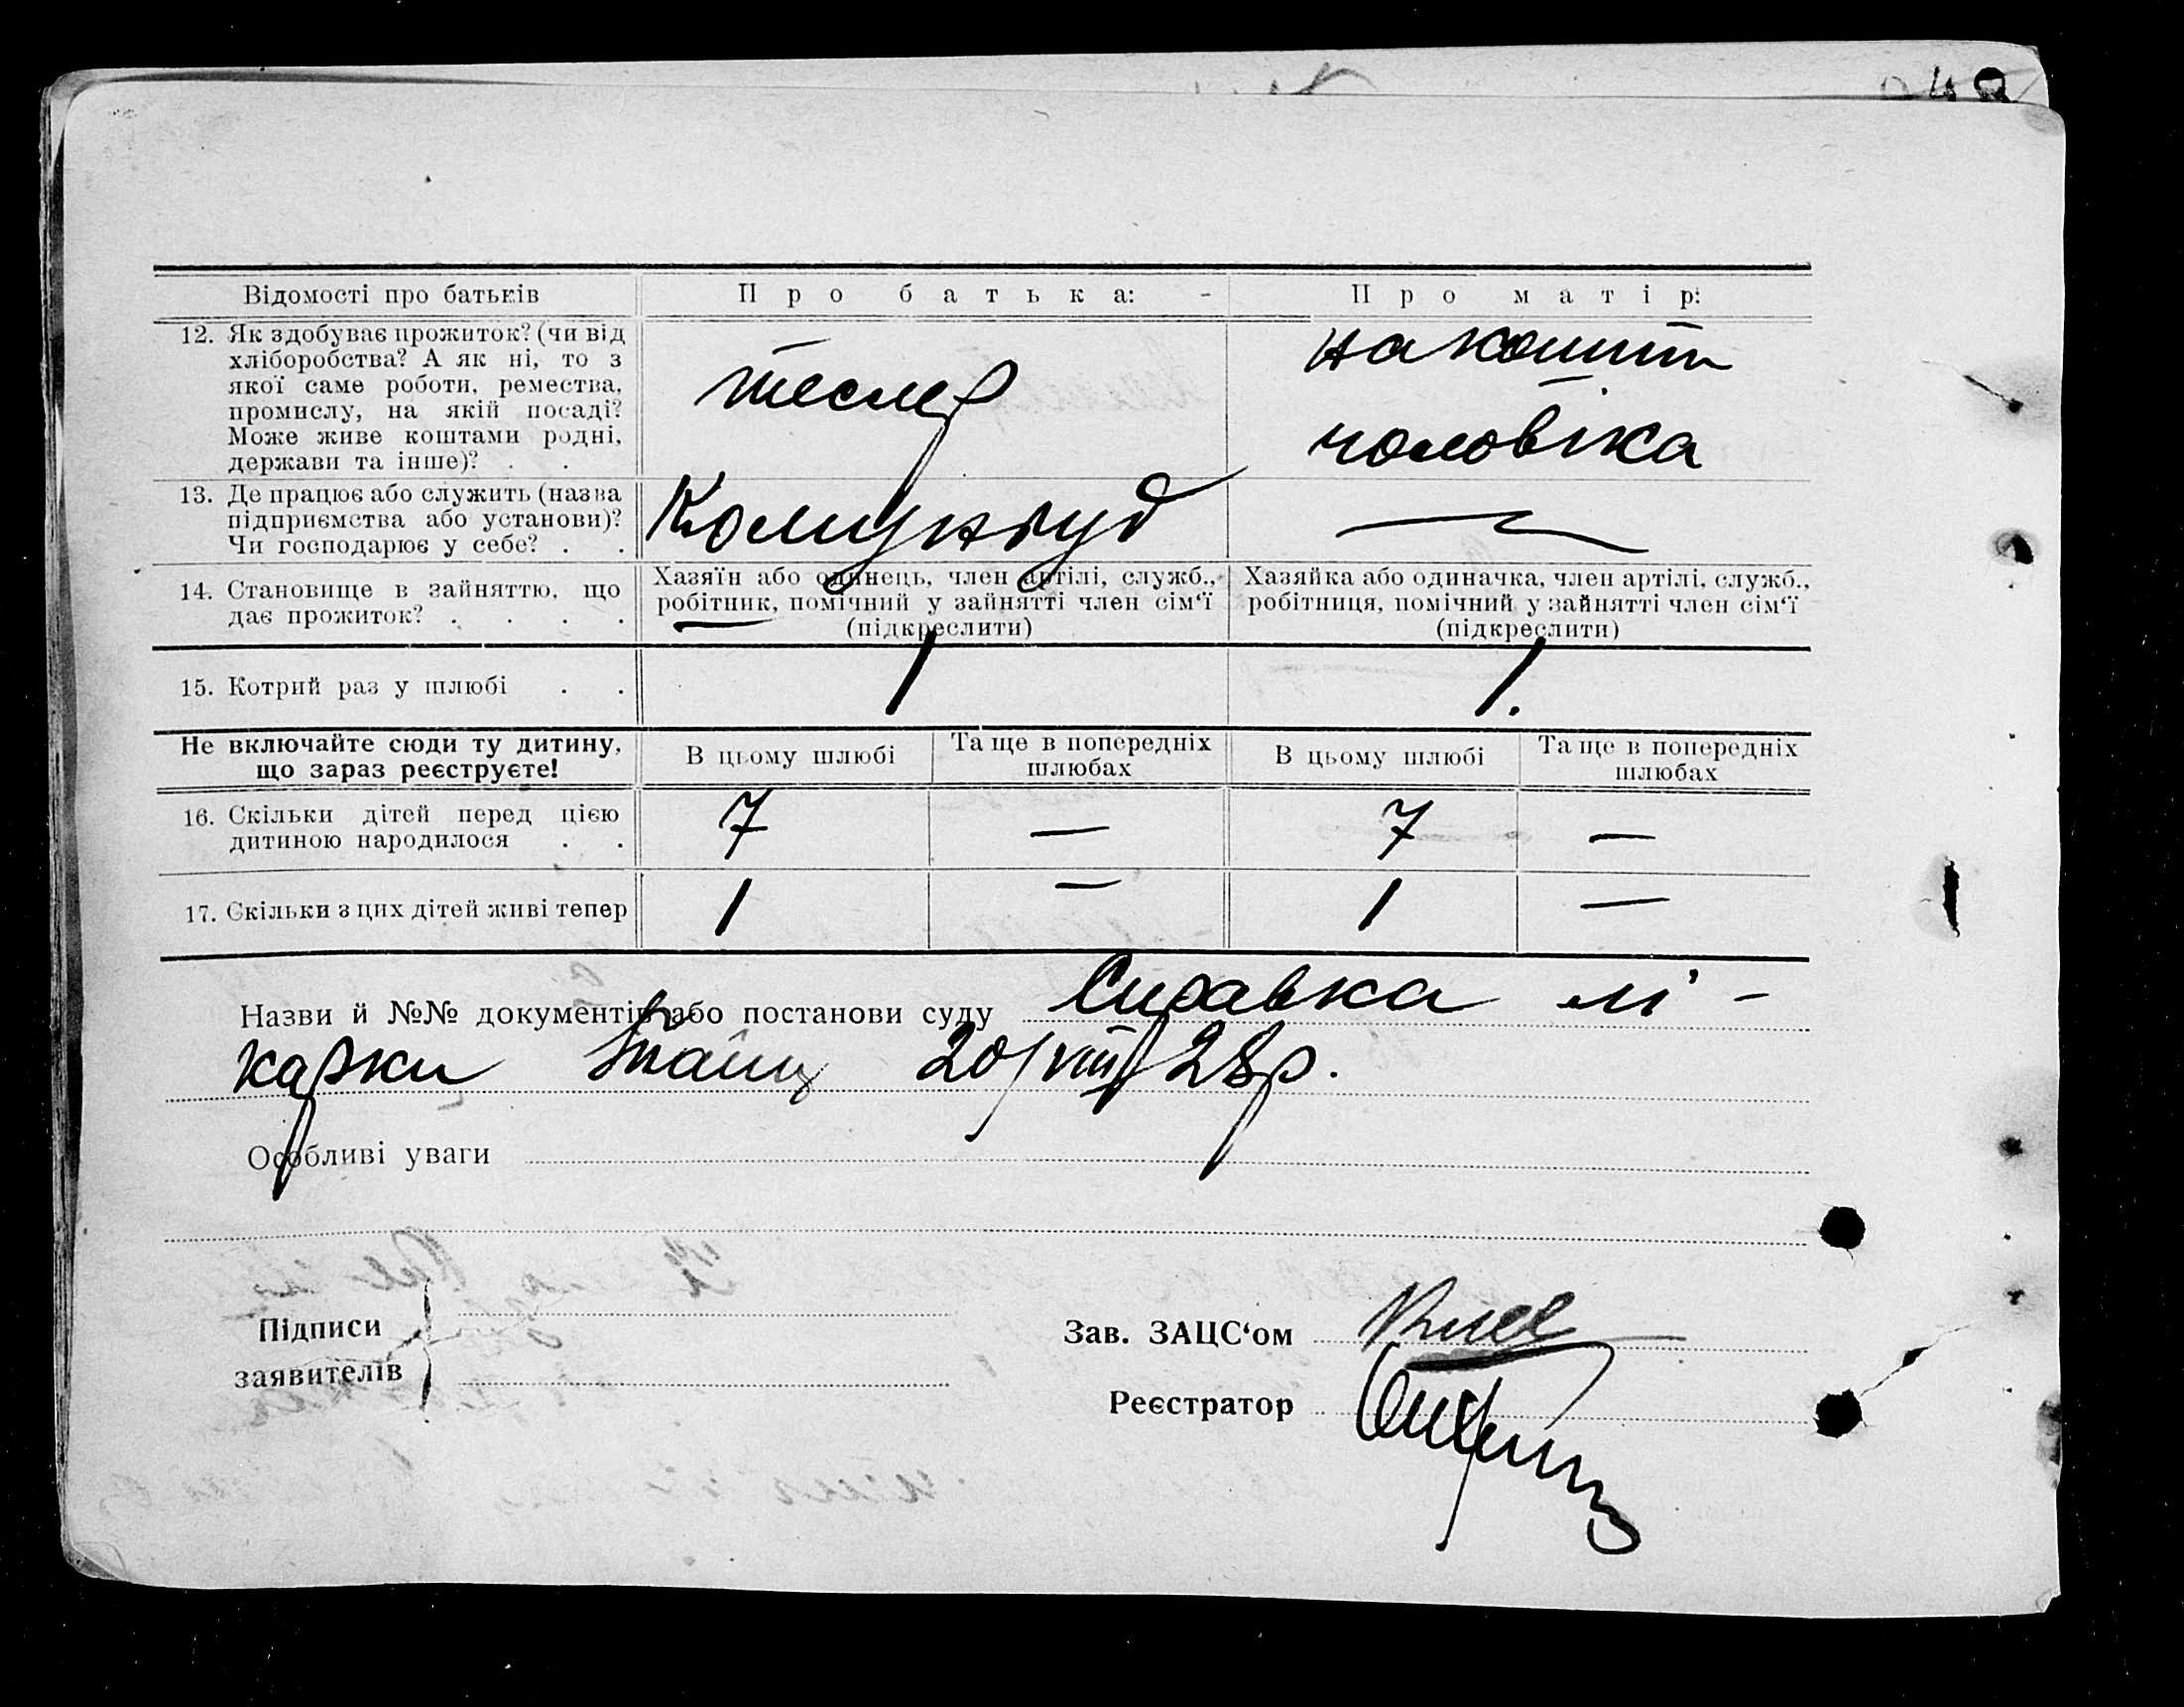 Відомості про батьків
П р о б а т ь к а: -
П р о м а т і р:
12. Як здобуває прожиток? (чи від
хліборобства? А як ні, то з
якої саме роботи, ремества,
промислу, на якій посаді?
Може живе коштами родні,
держави та інше)? . .
тесляр
на кошти
чоловіка
13. Де працює або служить (назва
підприємства або установи)?
Чи господарює у себе? . .
Комунбуд
—
14. Становище в зайняттю, що
дає прожиток? . . . .
Хазяїн або одинець, член артілі, служб.,
робітник, помічний у зайнятті член сім‘ї
(підкреслити)
Хазяйка або одиначка, член артілі, служб.,
робітниця, помічний у зайнятті член сім‘ї
(підкреслити)
15. Котрий раз у шлюбі . .
1
1.
Не включайте сюди ту дитину,
що зараз реєструєте!
В цьому шлюбі
Та ще в попередніх
шлюбах
В цьому шлюбі
Та ще в попередніх
шлюбах
16. Скільки дітей перед цією
дитиною народилося . .
7 — 7 —
17. Скільки з цих дітей живі тепер
1 — 1 —
Назви й №№ документів або постанови суду Справка лі-
карки 20/VIII 28р.
Особливі уваги
Підписи
заявителів
Зав. ЗАЦС‘ом
Реєстратор